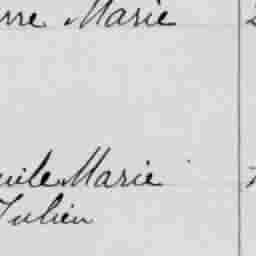 rre Marie
uile Marie
Julien